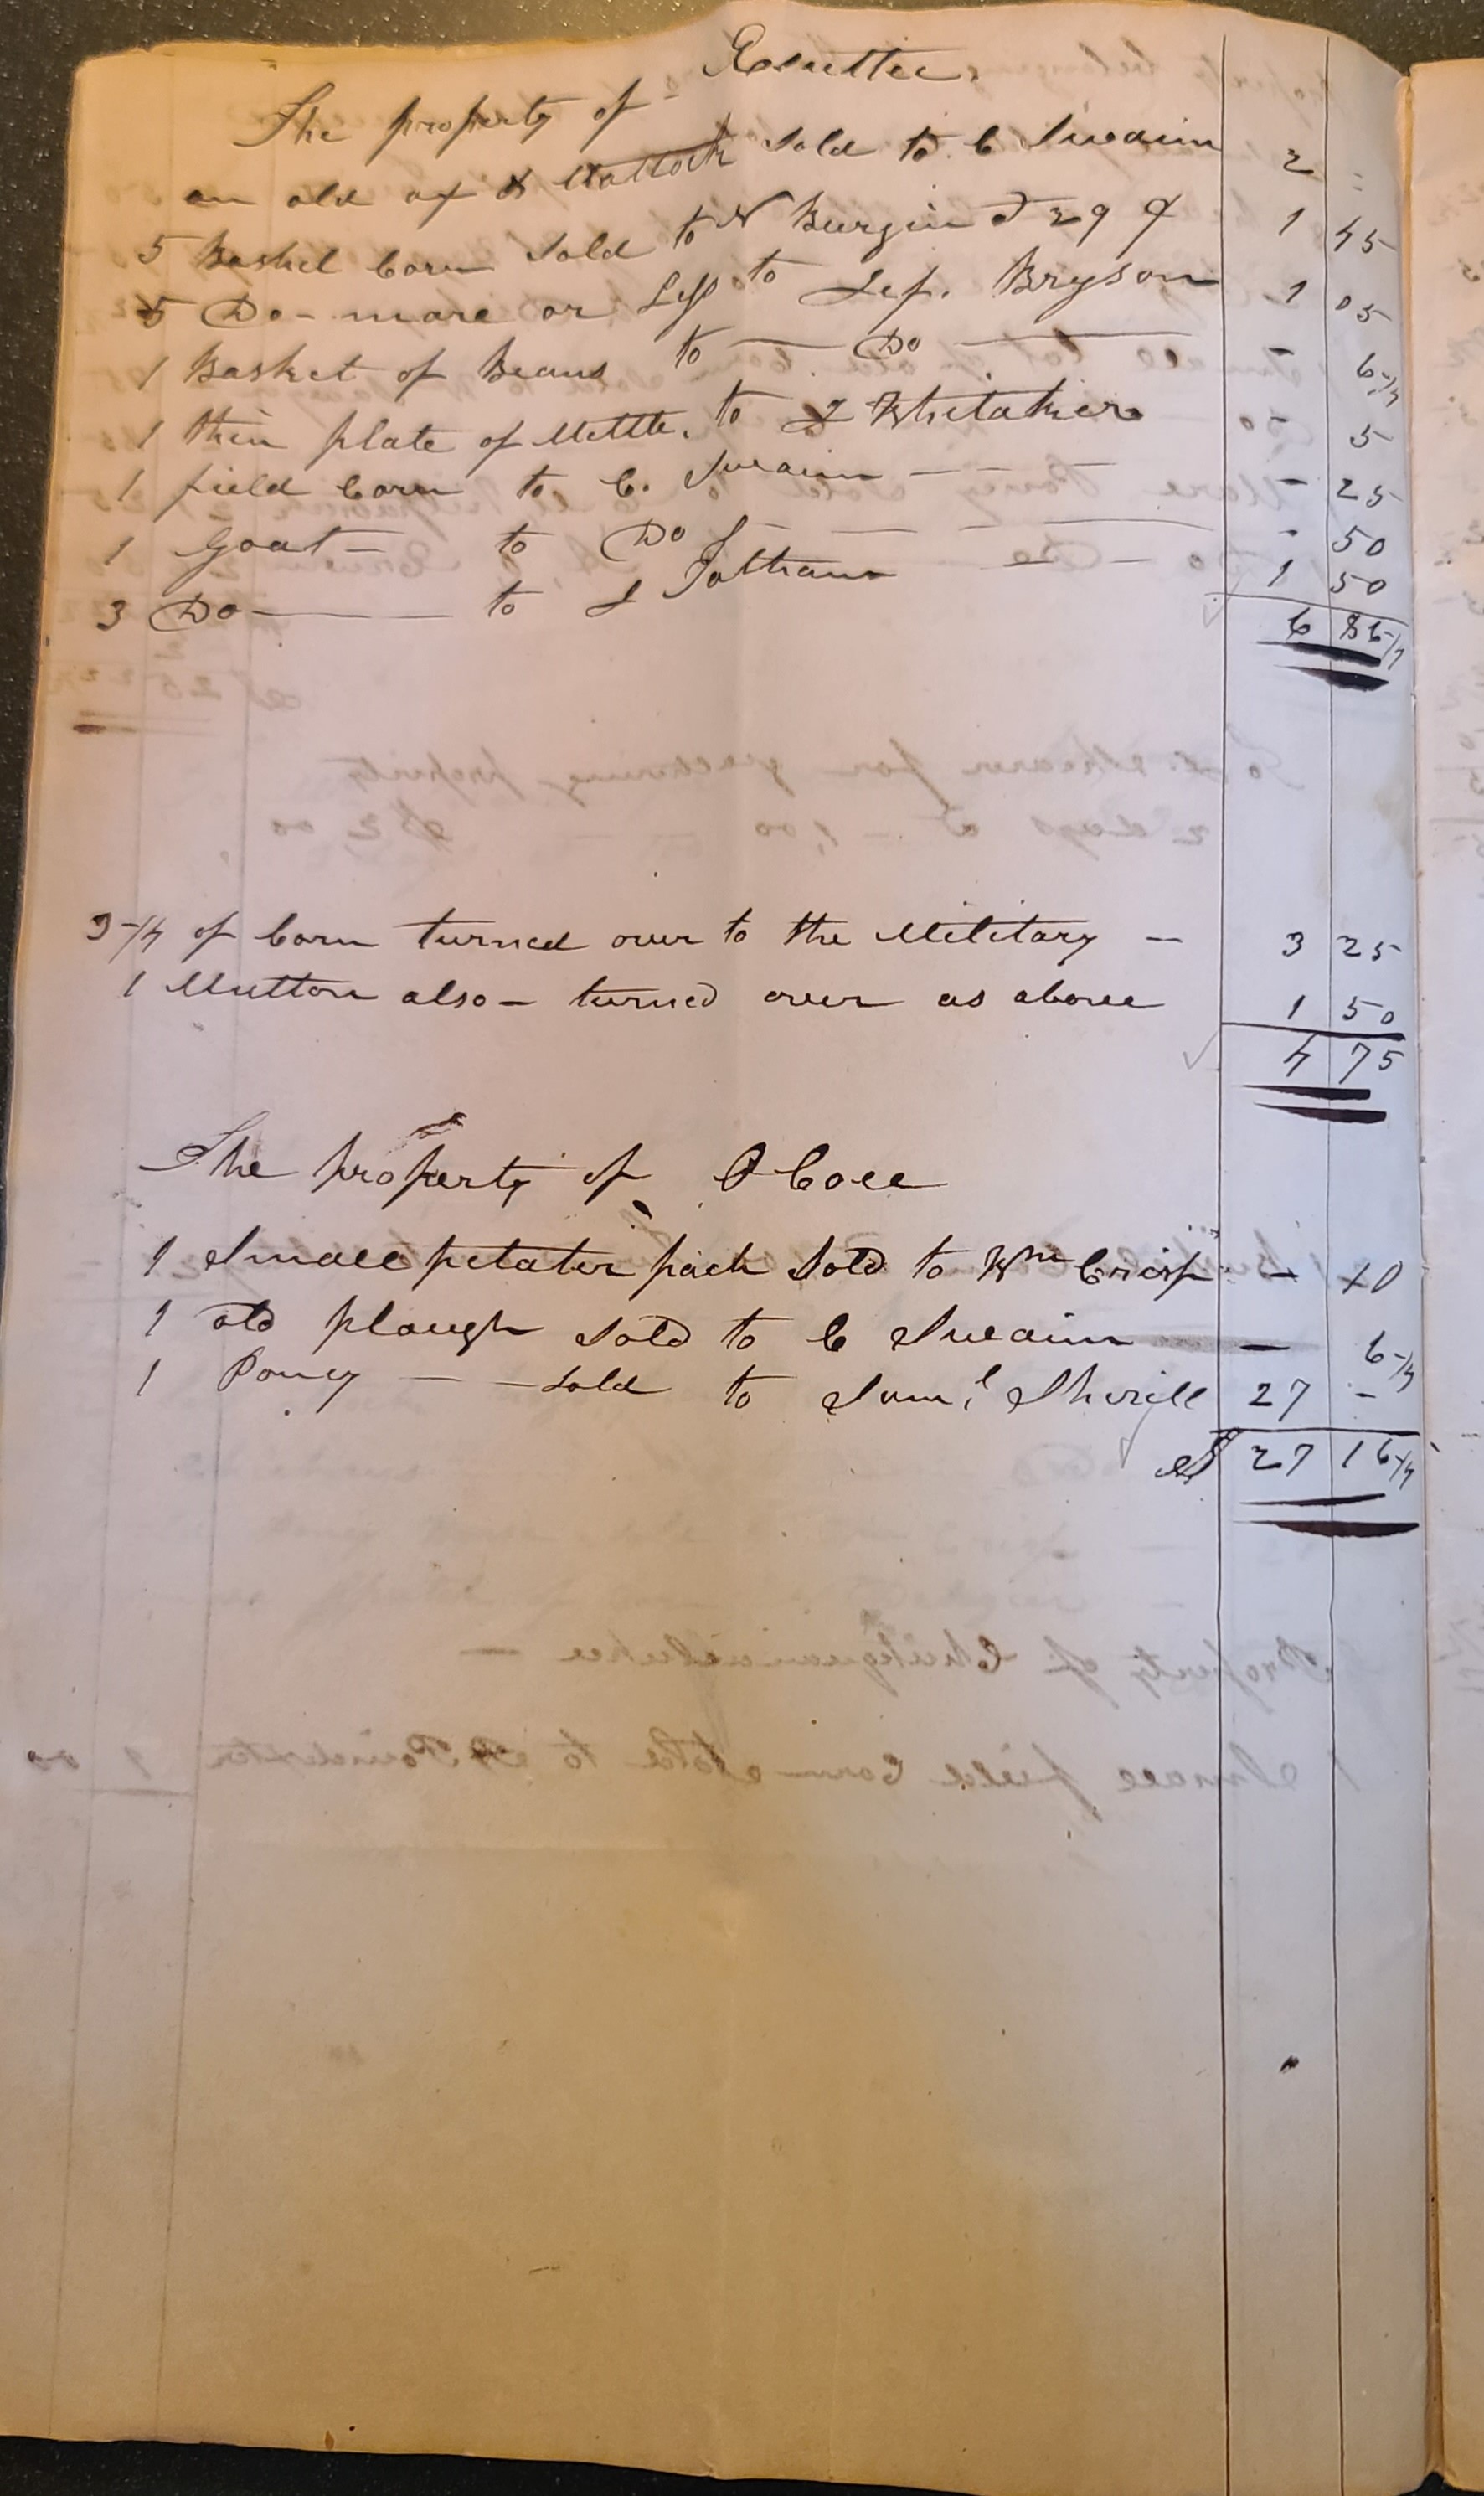 The property of -
an old ax & Mattock Sold to C Swaim 2 =
5 Bushel Corn Sold to N Burgin @ 29 ¢ 1 45
5 Do - more or Less to Jef. Bryson 1 05
1 Basket of Beans to — Do — - 6 1/4
1 thin plate of Mettle. to J Whitaker 5
1 field Corn to C. Swaim - - - 25
1 Goat - to Do - 50
3 Do — to J 1 50
6 86 1/4
3 1/4 of Corn turned over to the Military - 3 25
1 Mutton also - turned over as above 1 50
4 75
The property of
1 Small petater pach Sold to Wm Crisp - 10
1 old plough Sold to C Swaim - 6 1/4
1 Poney - - Sold to Saml Sherill 27 -
$ 27 16 1/4